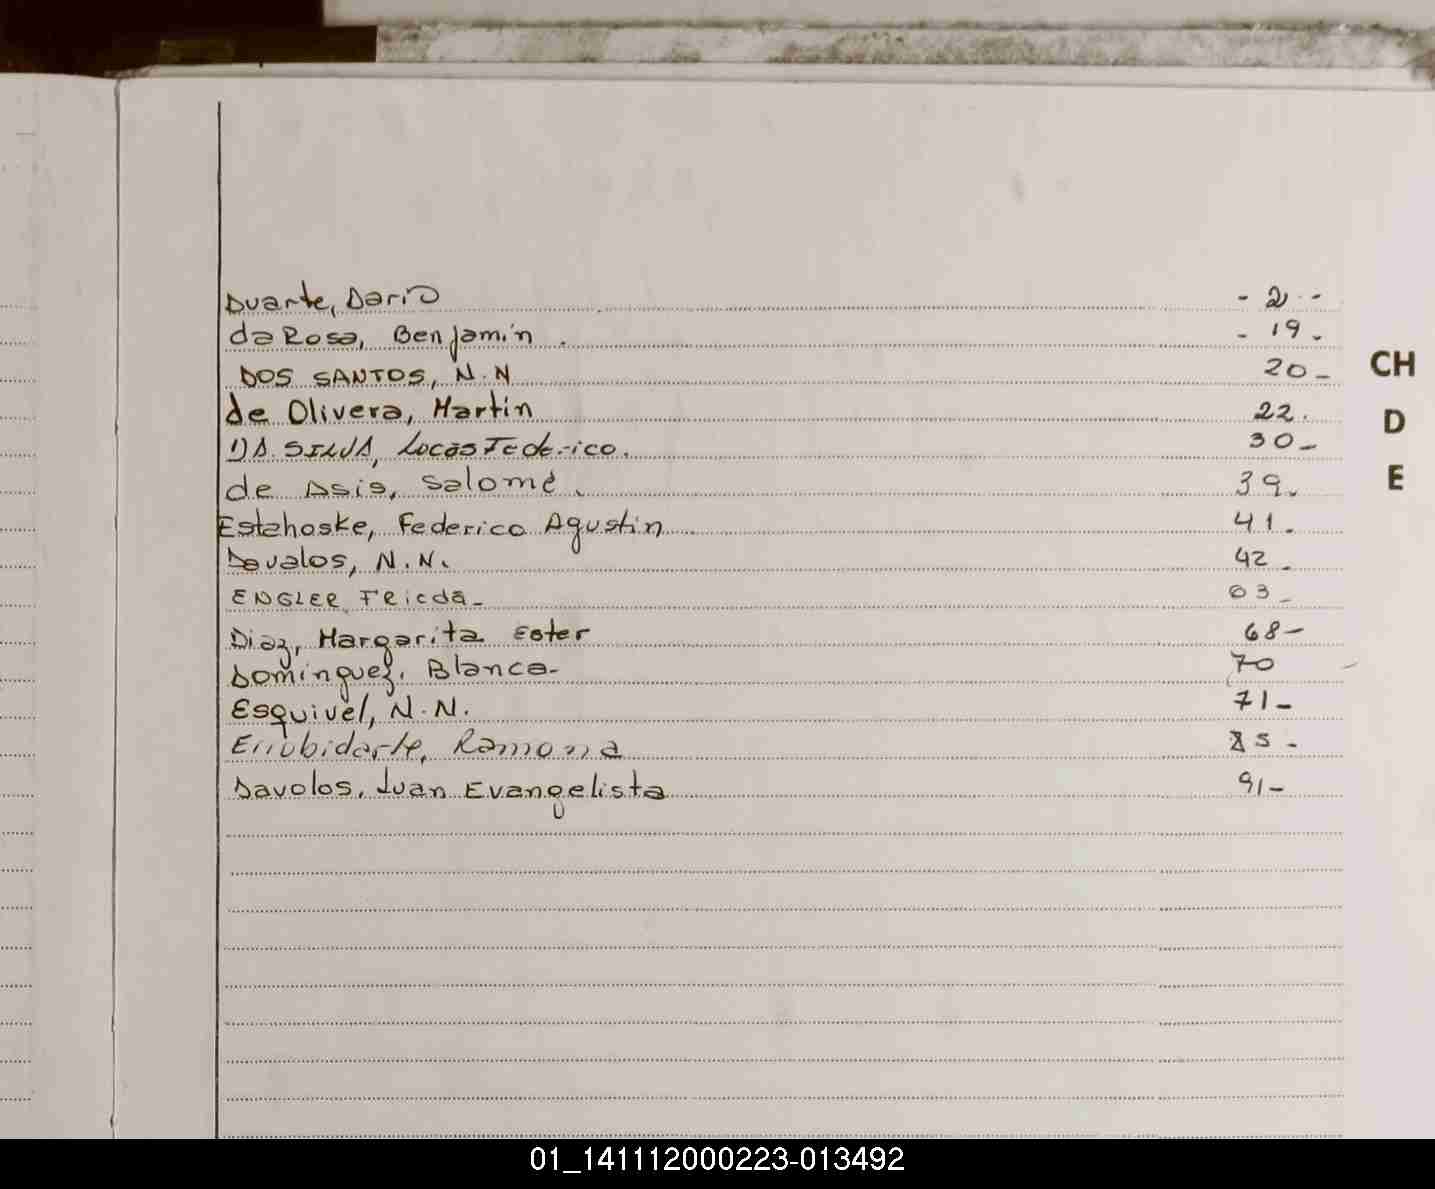 Duarte, Dario - 2 - -
da Rosa, Benjamin . - 19 -
DOS SANTOS, N.N 20 -
de Olivera, Martin 22.
DA SILVA, Lucas Federico. 30 -
de Asis, Salomé. 39.
Estahoske, Federico Agustin 41.
Davalos, N.N. 42 -
ENGLER Frieda - 63 -
Diaz, Margarita Ester 68 -
Dominguez, Blanca - 70
Esquivel, N.N. 71 -
Errobidarte, Ramona 85 -
Davolos, Juan Evangelista 91 -
CH
D
E
01_141112000223-013492